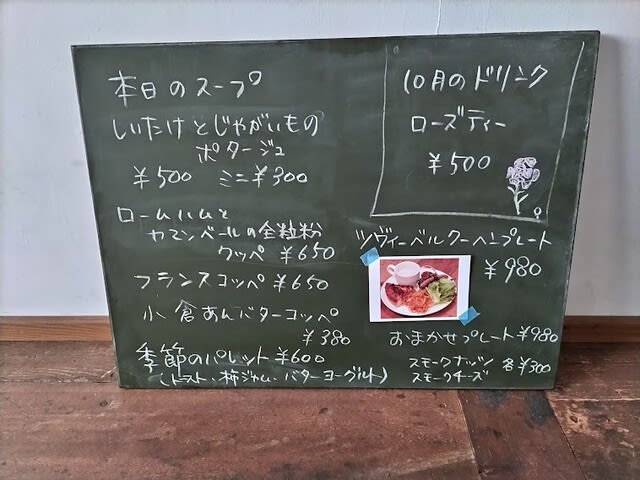 本日のスープ
しいたけとじゃがいもの
ポタージュ
¥500 ミニ¥300
ロームハムと
カマンベールの全粒粉
クッペ ¥650
フランスコッペ ¥650
小倉あんバターコッペ
¥380
季節のパレット ¥600
(トースト、柿ジャム、バターヨーグルト)
10月のドリンク
ローズティー
¥500
ツヴィーベルクーヘンプレート
¥980
おまかせプレート ¥980
スモークナッツ 各¥300
スモークチーズ